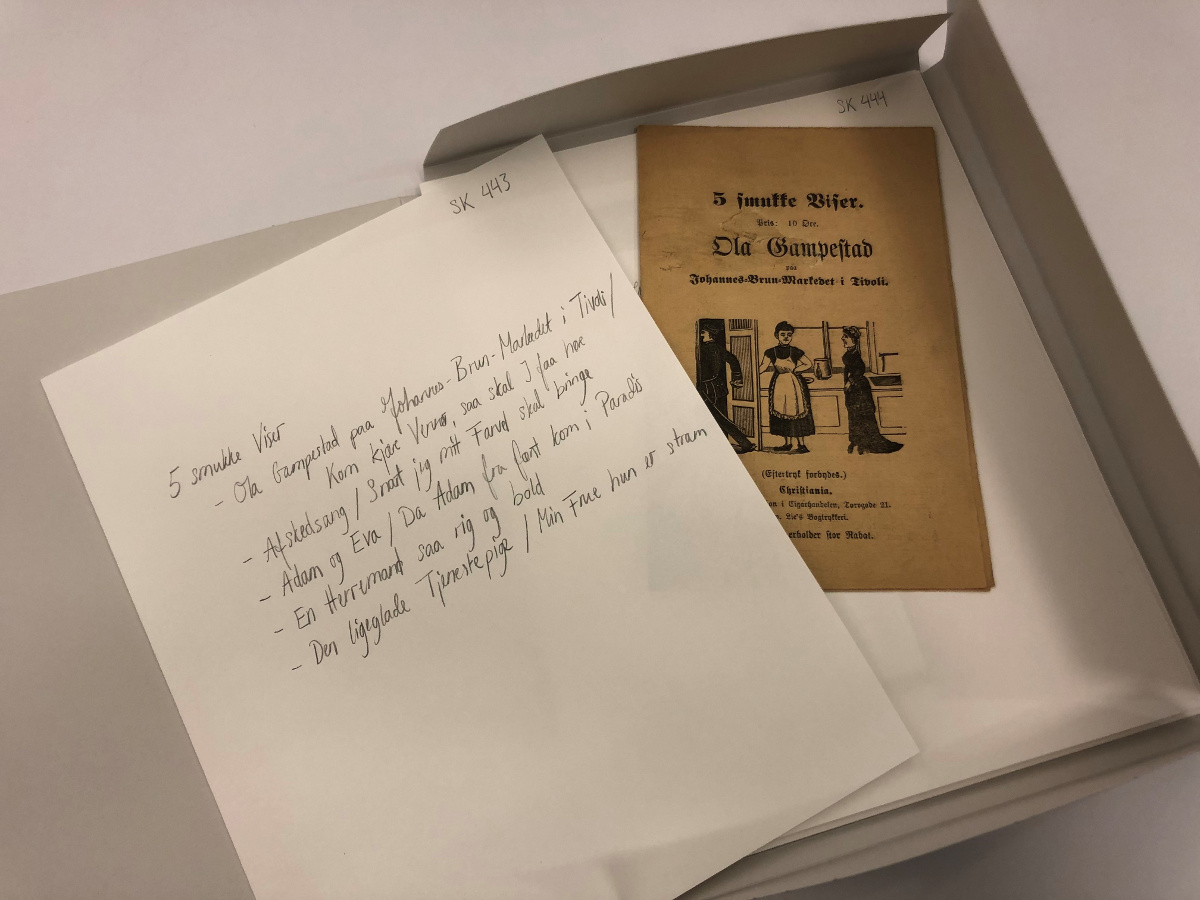 SK 443
5 smukke Viser
- Ola Gampestad paa Johannes-Brun-Markedet i Tivoli /
Kom kjære Venner, saa skal I faa høre
- Afskedsang / Snart jeg mit Farvel skal bringe
- Adam og Eva / Da Adam fra først kom i Paradis
- En Herremand saa rig og bold
- Den ligeglade Tjenestepige / Min Frue hun er stram
SK 444
5 smukke Viser.
Pris: 10 Øre.
Ola Gampestad
paa
Johannes-Brun-Markedet i Tivoli.
(Eftertryk forbydes.)
Christiania.
i Cigarhandelen, Torvgade 21.
Lie's Bogtrykkeri.
erholder stor Rabat.